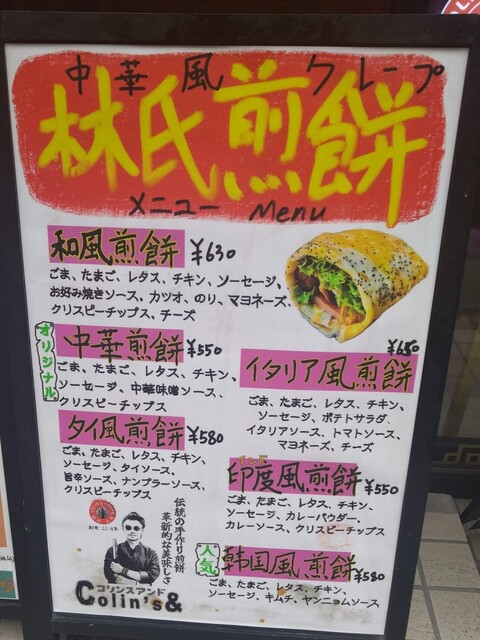 中華風クレープ
林氏煎餅
メニュー Menu
和風煎餅 ¥630
ごま、たまご、レタス、チキン、ソーセージ、
お好み焼きソース、カツオ、のり、マヨネーズ、
クリスピーチップス、チーズ
オリジナル
中華煎餅 ¥550
ごま、たまご、レタス、チキン、
ソーセージ、中華味噌ソース、
クリスピーチップス
イタリア風煎餅 ¥650
ごま、たまご、レタス、チキン、
ソーセージ、ポテトサラダ、
イタリアソース、トマトソース、
マヨネーズ、チーズ
タイ風煎餅 ¥580
ごま、たまご、レタス、チキン、
ソーセージ、タイソース、
旨辛ソース、ナンプラーソース、
クリスピーチップス
インド
印度風煎餅 ¥550
ごま、たまご、レタス、チキン、
ソーセージ、カレーパウダー、
カレーソース、クリスピーチップス
人気
韓国風煎餅 ¥580
ごま、たまご、レタス、チキン、
ソーセージ、キムチ、ヤンニョムソース、
伝統の手作り煎餅
革新的な美味しさ
コリンスアンド
Colin's&